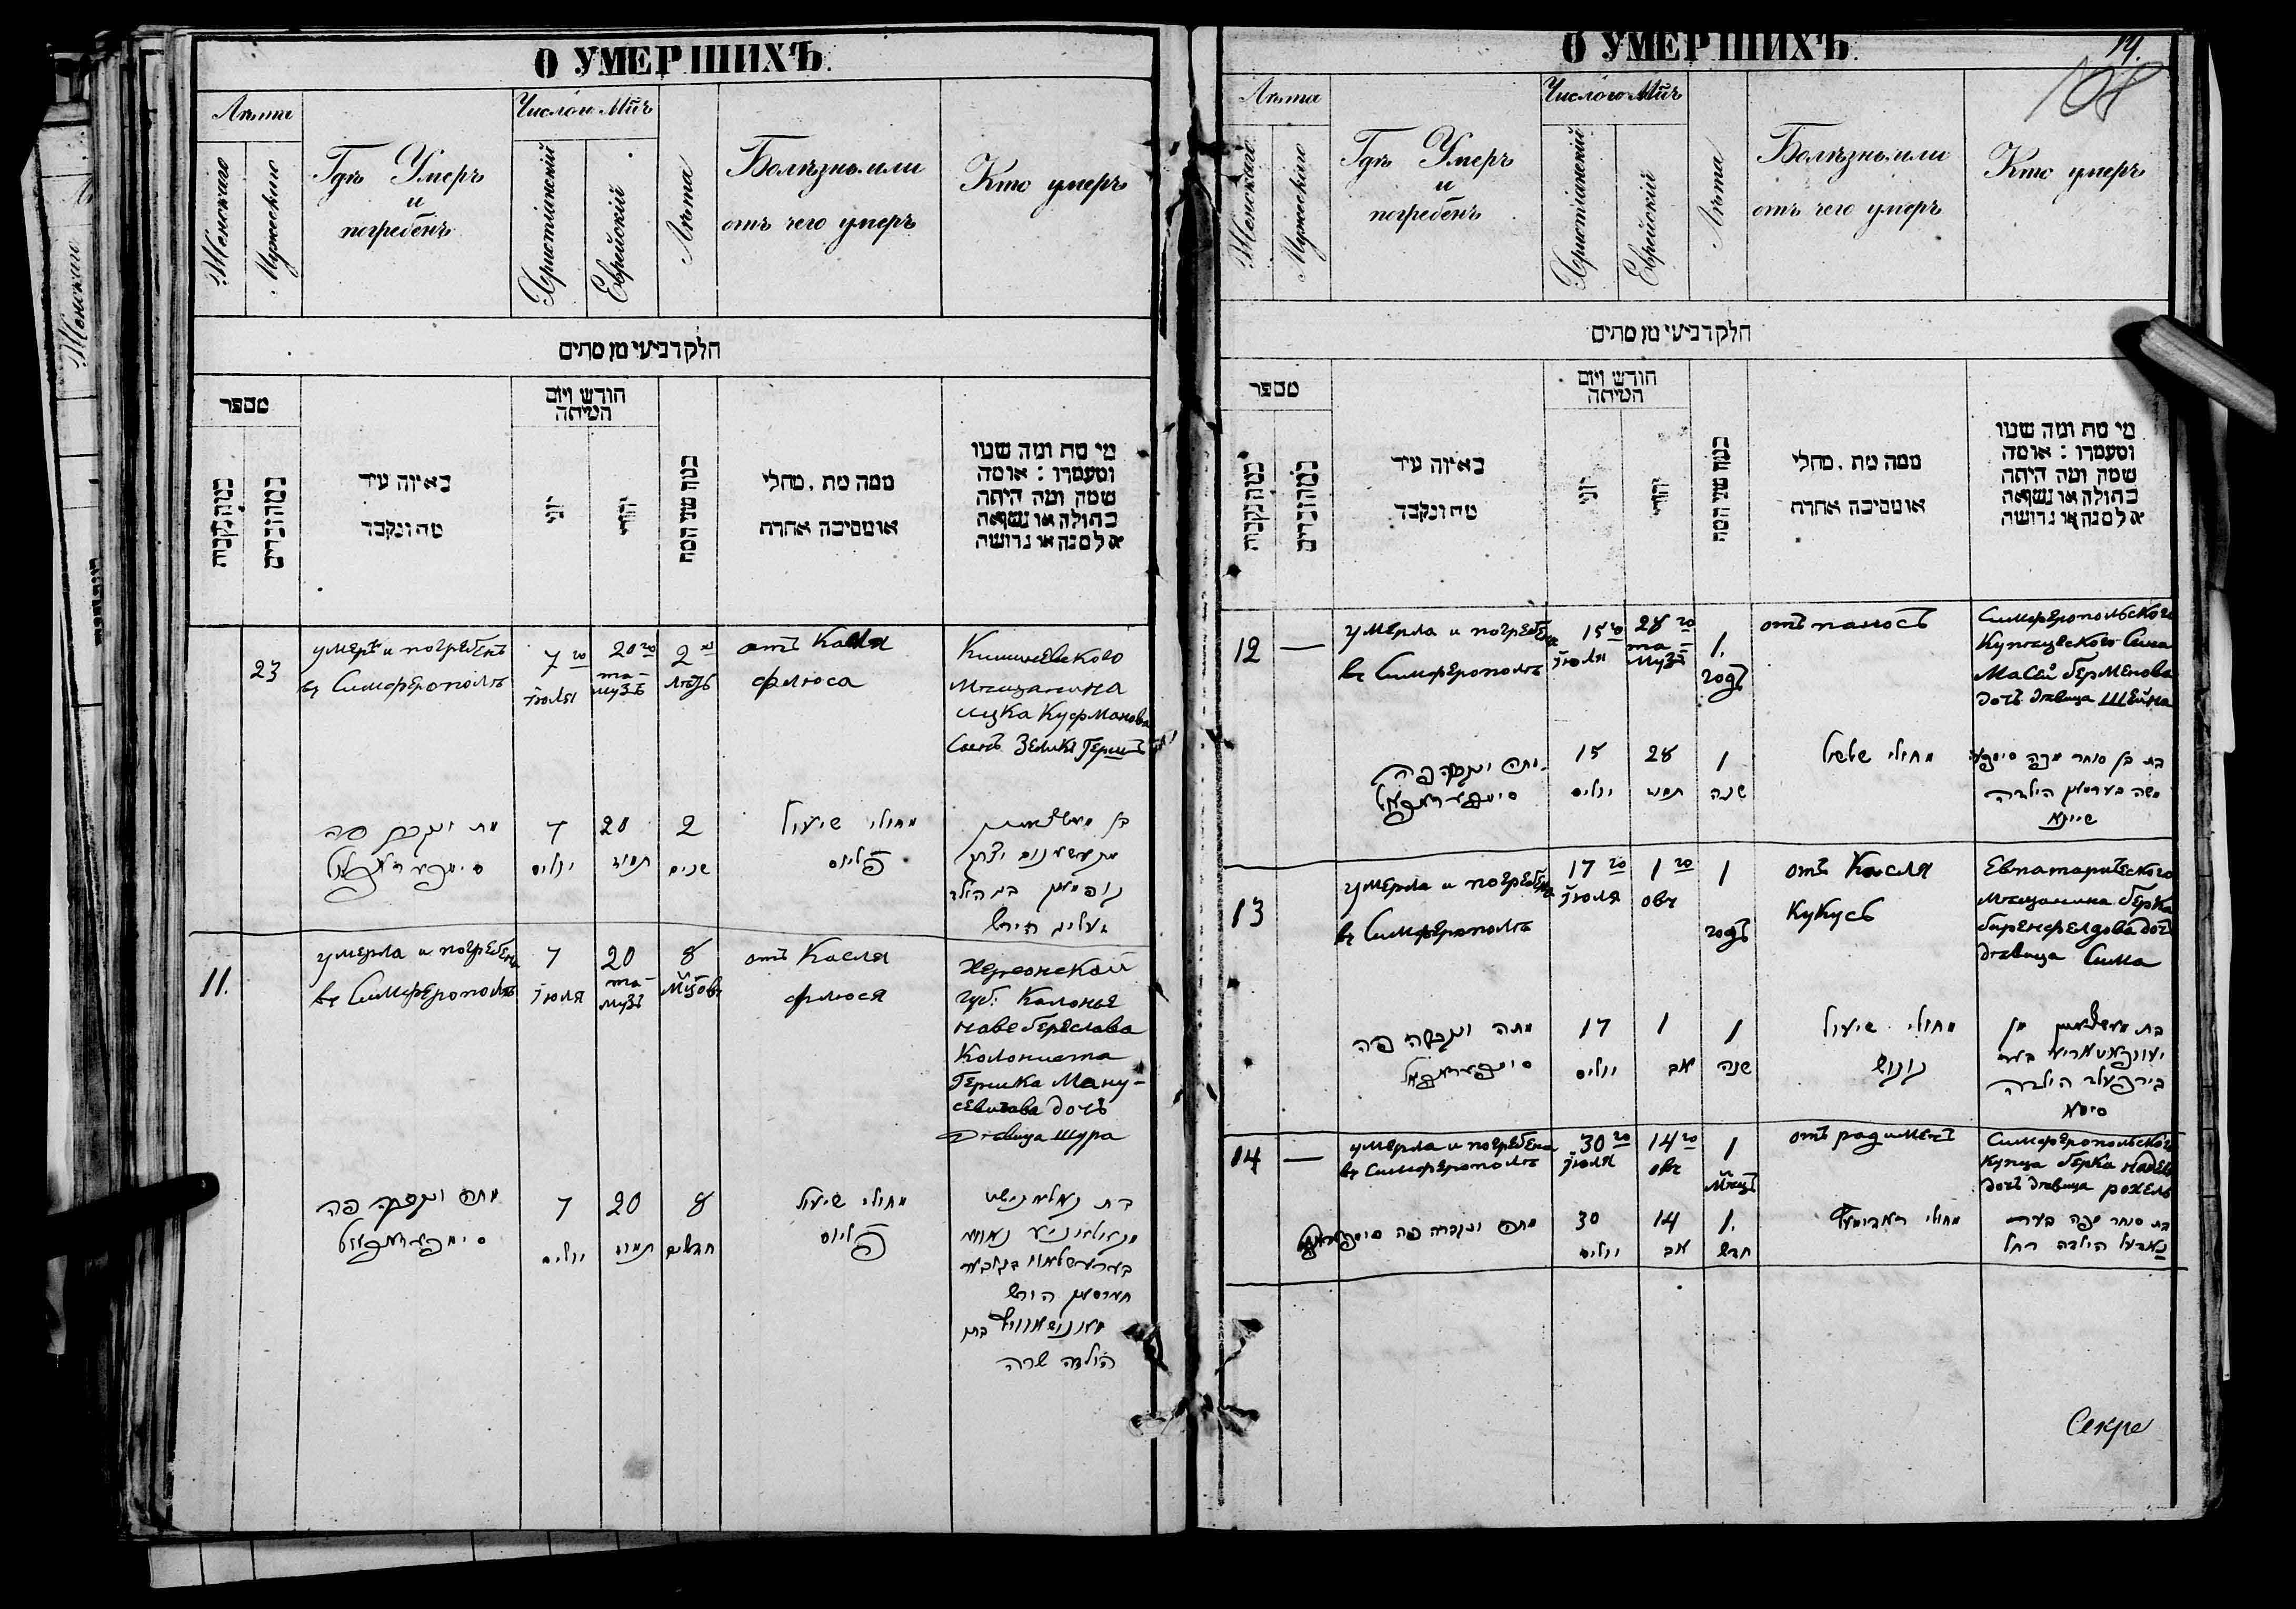 О УМЕРШИХЪ.
Лѣта
Женскаго
Мужескаго
Гдѣ Умеръ
и
погребенъ
Число и Мѣц
Христіанскій
Еврейскій
Лѣта
Болѣзнь или
отъ чего умеръ
Кто умеръ
חלק רביעי מן מתים
מספר
כמה נקבות
כמה זכרים
באיזה עיר
מת ונקבר
חודש ויום
המיתה
יוני
יהודי
כמה שני המת
ממה מת, מחלי
או מסיבה אחרת
מי מת ומה שמו
ומעמדו: או מה
שמה ומה היתה
בתולה או נשואה
אלמנה או גרושה
23
умеръ и погребенъ
въ Симферополѣ
7го
Іюля
20го
та-
музъ
2
лѣтъ
отъ Кашля
флюса
Кишиневского
мѣщанина
Ицка Куфманова
Сынъ Зеликъ Гершъ
מת ונקבר פה
סימפעראפאל
7
יוליס
20
תמוז
2
שנים
מחולי שיעול
פליוס
יצחק
הילד
זעליג הירש
11.
умерла и погребена
въ Симферополѣ
7
Іюля
20
та-
музъ
8
Мѣцовъ
отъ Касля
флюся
Херсонской
губ: Колонья
Наве Береслава
Колониста
Гершка Ману-
севичова дочь
Дѣвица Шура
מתה ונקברה פה
סימפעראפאל
7
יוליס
20
תמוז
8
חדשים
מחולי שיעול
פליוס
בת
הירש
בת
הילדה שרה
О УМЕРШИХЪ
14.
108
Лѣта
Женскаго
Мужескаго
Гдѣ Умеръ
и
погребенъ
Число и Мѣц
Христіанскій
Еврейскій
Лѣта
Болѣзнь или
отъ чего умеръ
Кто умеръ
חלק רביעי מן מתים
מספר
כמה נקבות
כמה זכרים
באיזה עיר
מת ונקבר
חודש ויום
המיתה
יוני
יהודי
כמה שני המת
ממה מת, מחלי
או מסיבה אחרת
מי מת ומה שמו
ומעמדו: או מה
שמה ומה היתה
בתולה או נשואה
אלמנה או גרושה
12 —
умерла и погребена
въ Симферополѣ
15го
Іюля
28го
та-
музъ
1.
годъ
отъ паност
Симферопольского
Купеческого Сина
Масей Берменова
дочь дѣвица Шейна
מתה ונקברה פה
סימפעראפאל
15
יוליס
28
תמוז
1
שנה
מחולי שלשול
בת בן סוחר
משה בערמאן הילדה
שיינא
13
умерла и погребена
въ Симферополѣ
17го
Іюля
1го
овъ
1
годъ
отъ Касля
Кукусъ
Евпаторийского
мѣщанина Берка
Биренфелдова дочь
дѣвица Сима
מתה ונקברה פה
סימפעראפאל
17
יוליס
1
אב
1
שנה
מחולי שיעול
בת מעשצאנין מן
הילדה
סימא
14 —
умерла и погребена
въ Симферополѣ
30го
Іюля
14го
овъ
1
Мѣцъ
отъ радимецъ
Симферопольского
Купца Берка
дочь дѣвица рохель
מתה ונקברה פה סימפעראפאל
30
יוליס
14
אב
1.
חדש
מחולי
בת סוחר מפה בערק
הילדה רחל
Секре